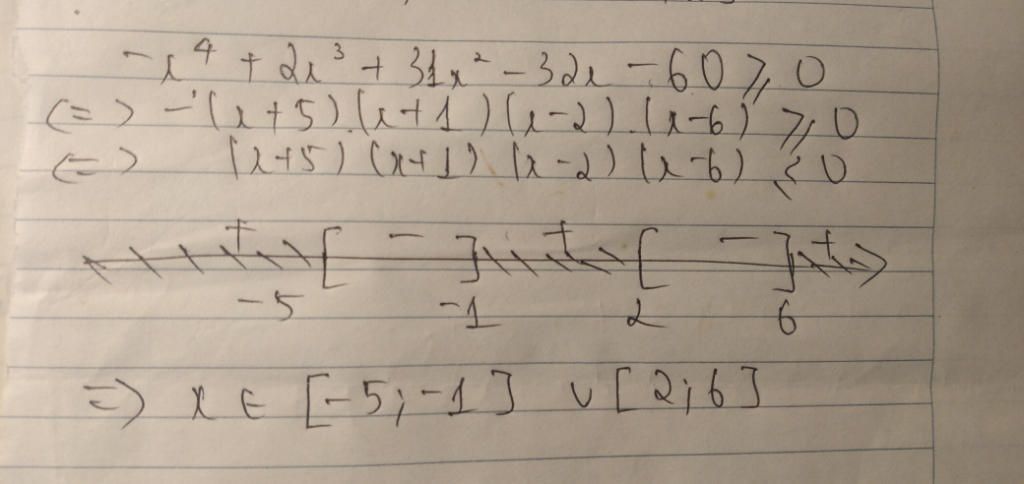 -x⁴ + 2x³ + 31x² - 32x - 60 ⩾ 0
<=> -(x+5).(x+1)(x-2).(x-6) ⩾ 0
<=> (x+5)(x+1)(x-2)(x-6) ⩽ 0
+ [ - ] + [ - ] +
-5 -1 2 6
=> x ∈ [-5;-1] ∪ [2;6]